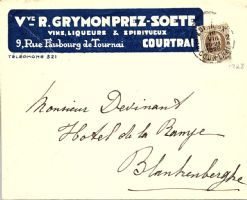 Vve R. GRYMONPREZ-SOETE
VINS, LIQUEURS & SPIRITUEUX
9, Rue Faubourg de Tournai COURTRAI
TÉLÉPHONE 321
Monsieur Devinant
Hotel de la Rampe
Blankenberghe